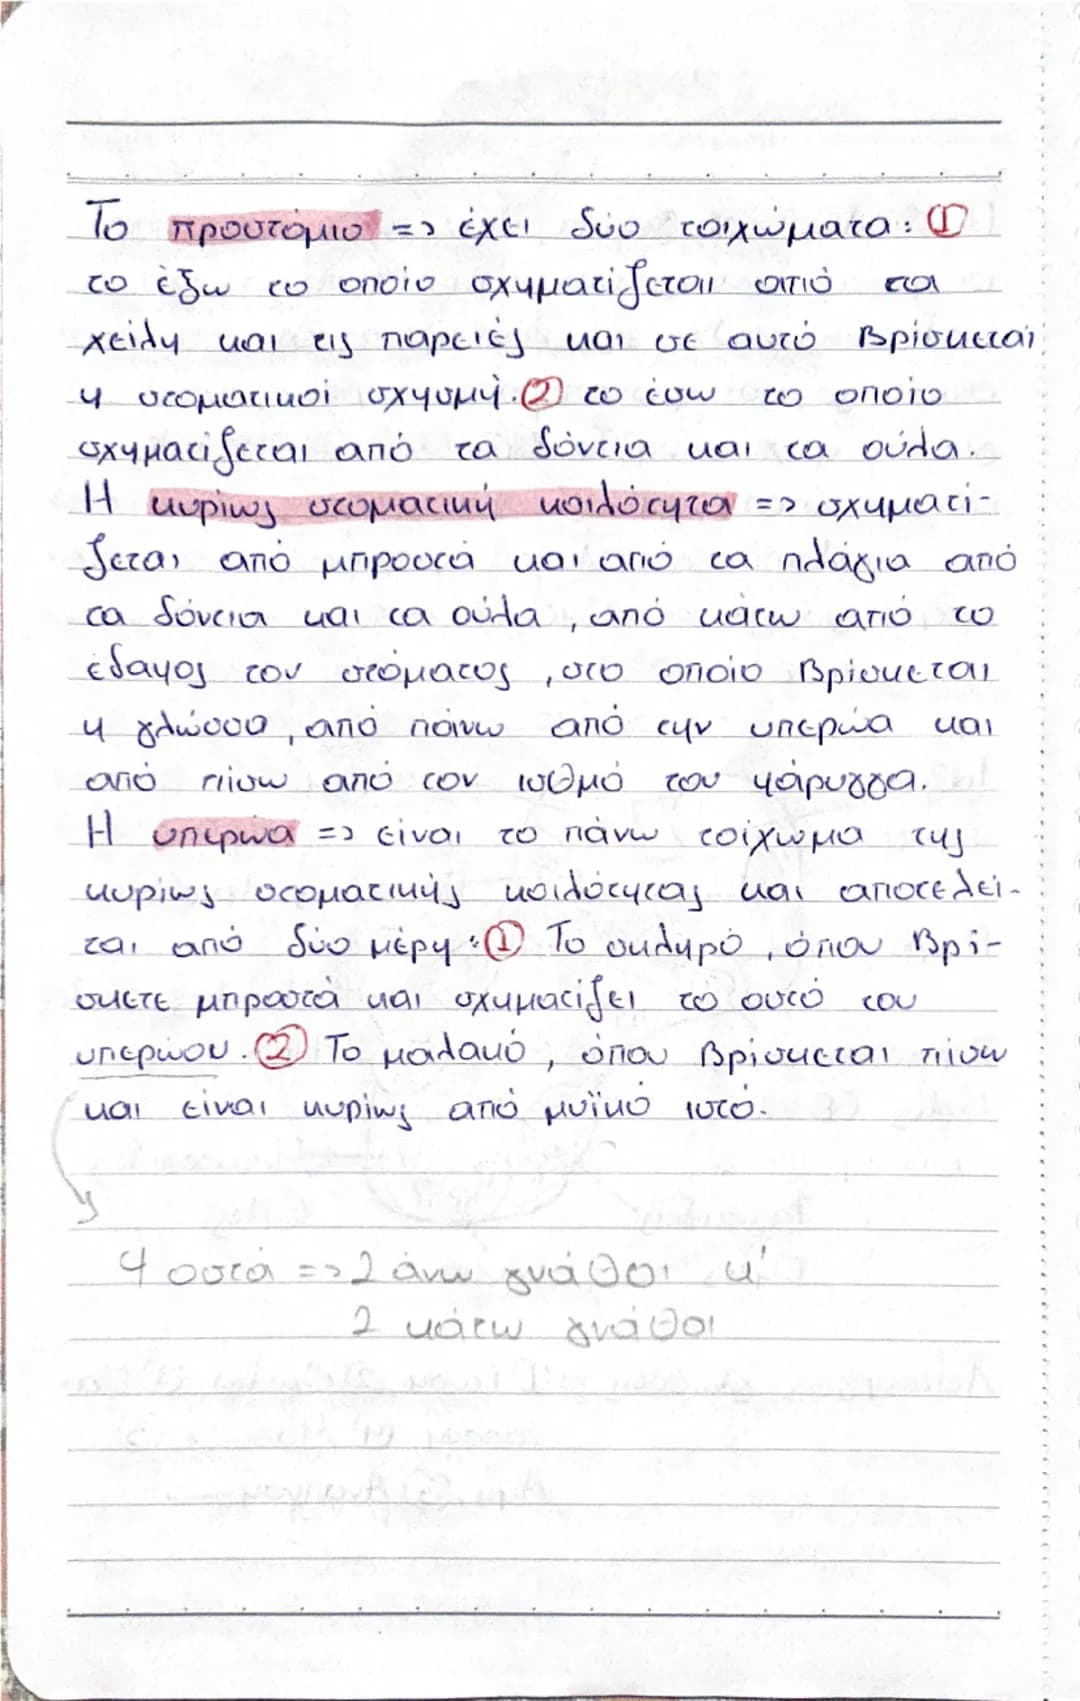 Το προστόμιο => έχει δύο τοιχώματα: ①
το έξω το οποίο σχηματίζεται από τα
χείλη και τις παρειές και σε αυτό βρίσκεται
η στοματικοί σχησμή. ② το έσω το οποίο
σχηματίζεται από τα δόντια και τα ούλα.
Η κυρίως στοματική κοιλότητα => σχηματί-
ζεται από μπροστά και από τα πλάγια από
τα δόντια και τα ούλα, από κάτω από το
έδαφος του στόματος, στο οποίο βρίσκεται
η γλώσσα, από πάνω από την υπερώα και
από πίσω από τον ισθμό του φάρυγγα.
Η υπερώα => είναι το πάνω τοίχωμα της
κυρίως στοματικής κοιλότητας και αποτελεί-
ται από δύο μέρη: ① Το σκληρό, όπου βρί-
σκετε μπροστά και σχηματίζει το οστό του
υπερώου. ② Το μαλακό, όπου βρίσκεται πίσω
και είναι κυρίως από μυϊκό ιστό.
4 οστά => 2 άνω γνάθοι κ'
2 κάτω γνάθοι